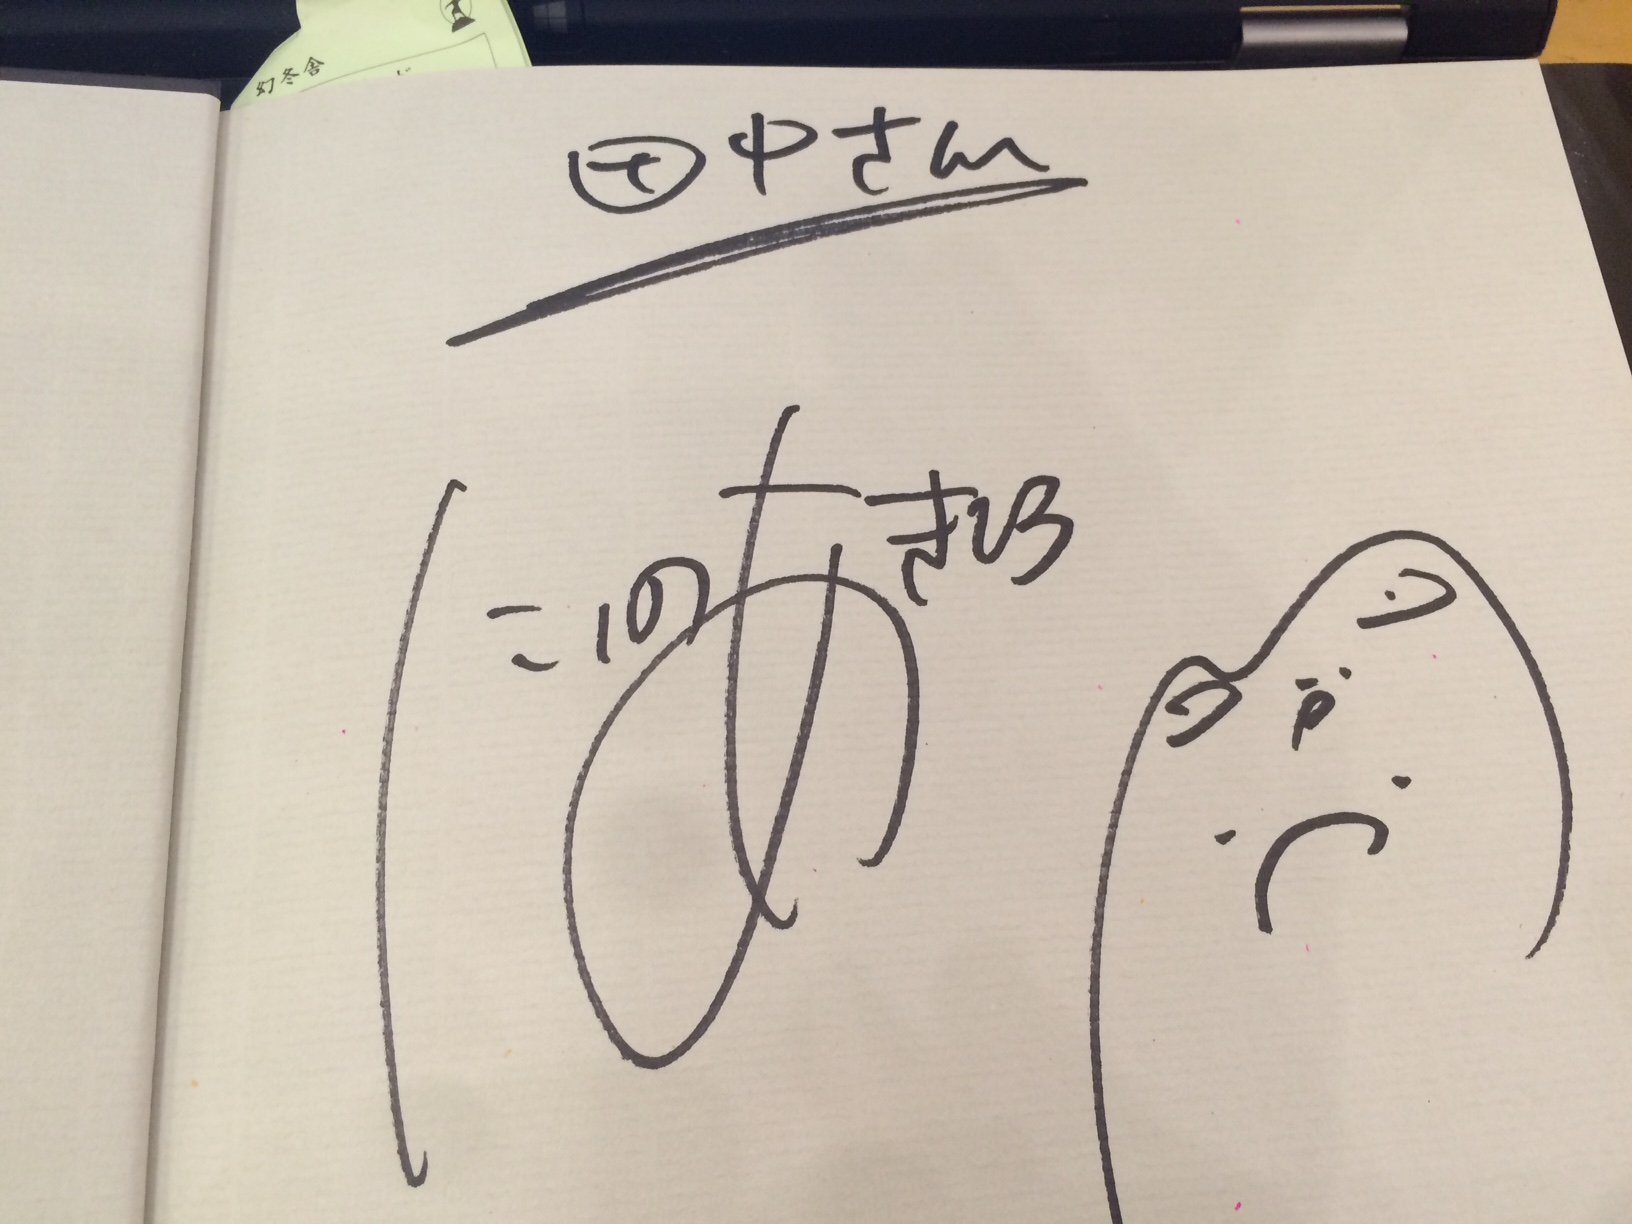 幻冬舎
田中さん
にしのあきひろ